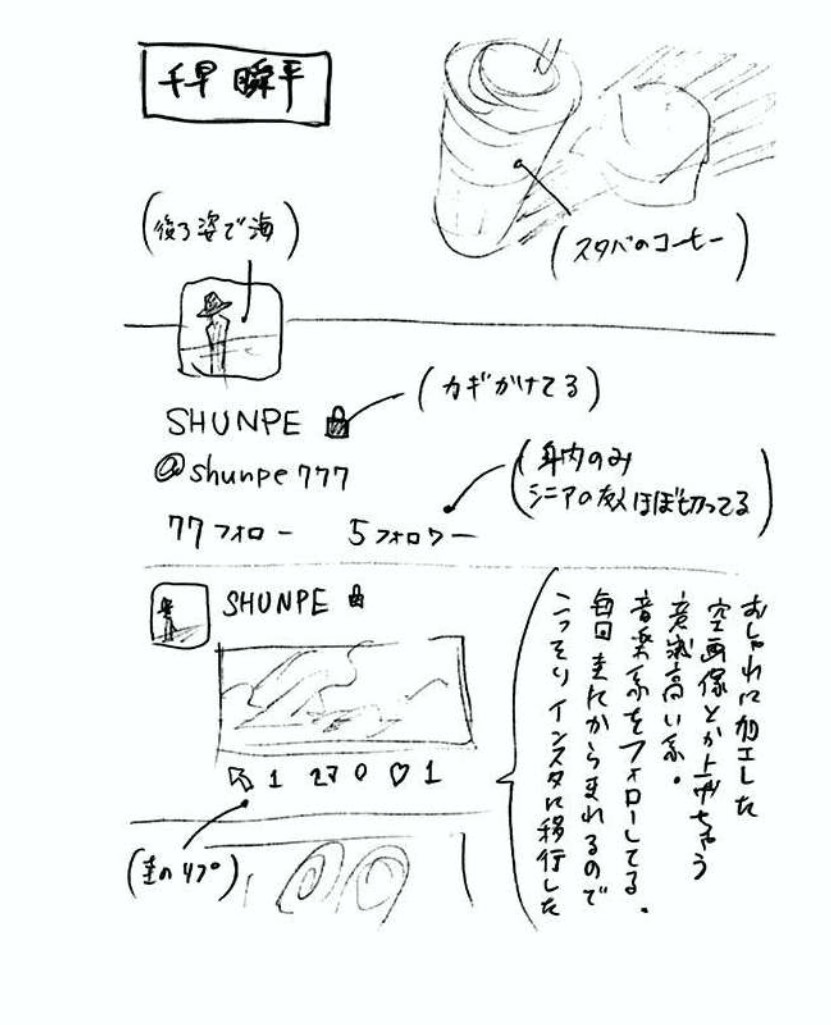 千早 瞬平
(後ろ姿で海)
(スタバのコーヒー)
SHUNPE
(カギかけてる)
@shunpe777
77フォロー 5フォロワー
(身内のみ
シニアの友人ほぼ切ってる)
SHUNPE
1 0 1
(圭のリプ)
おしゃれに加工した
空画像とか上げちゃう
意識高い系。
音楽系をフォローしてる。
毎回圭にからまれるので
こっそりインスタに移行した